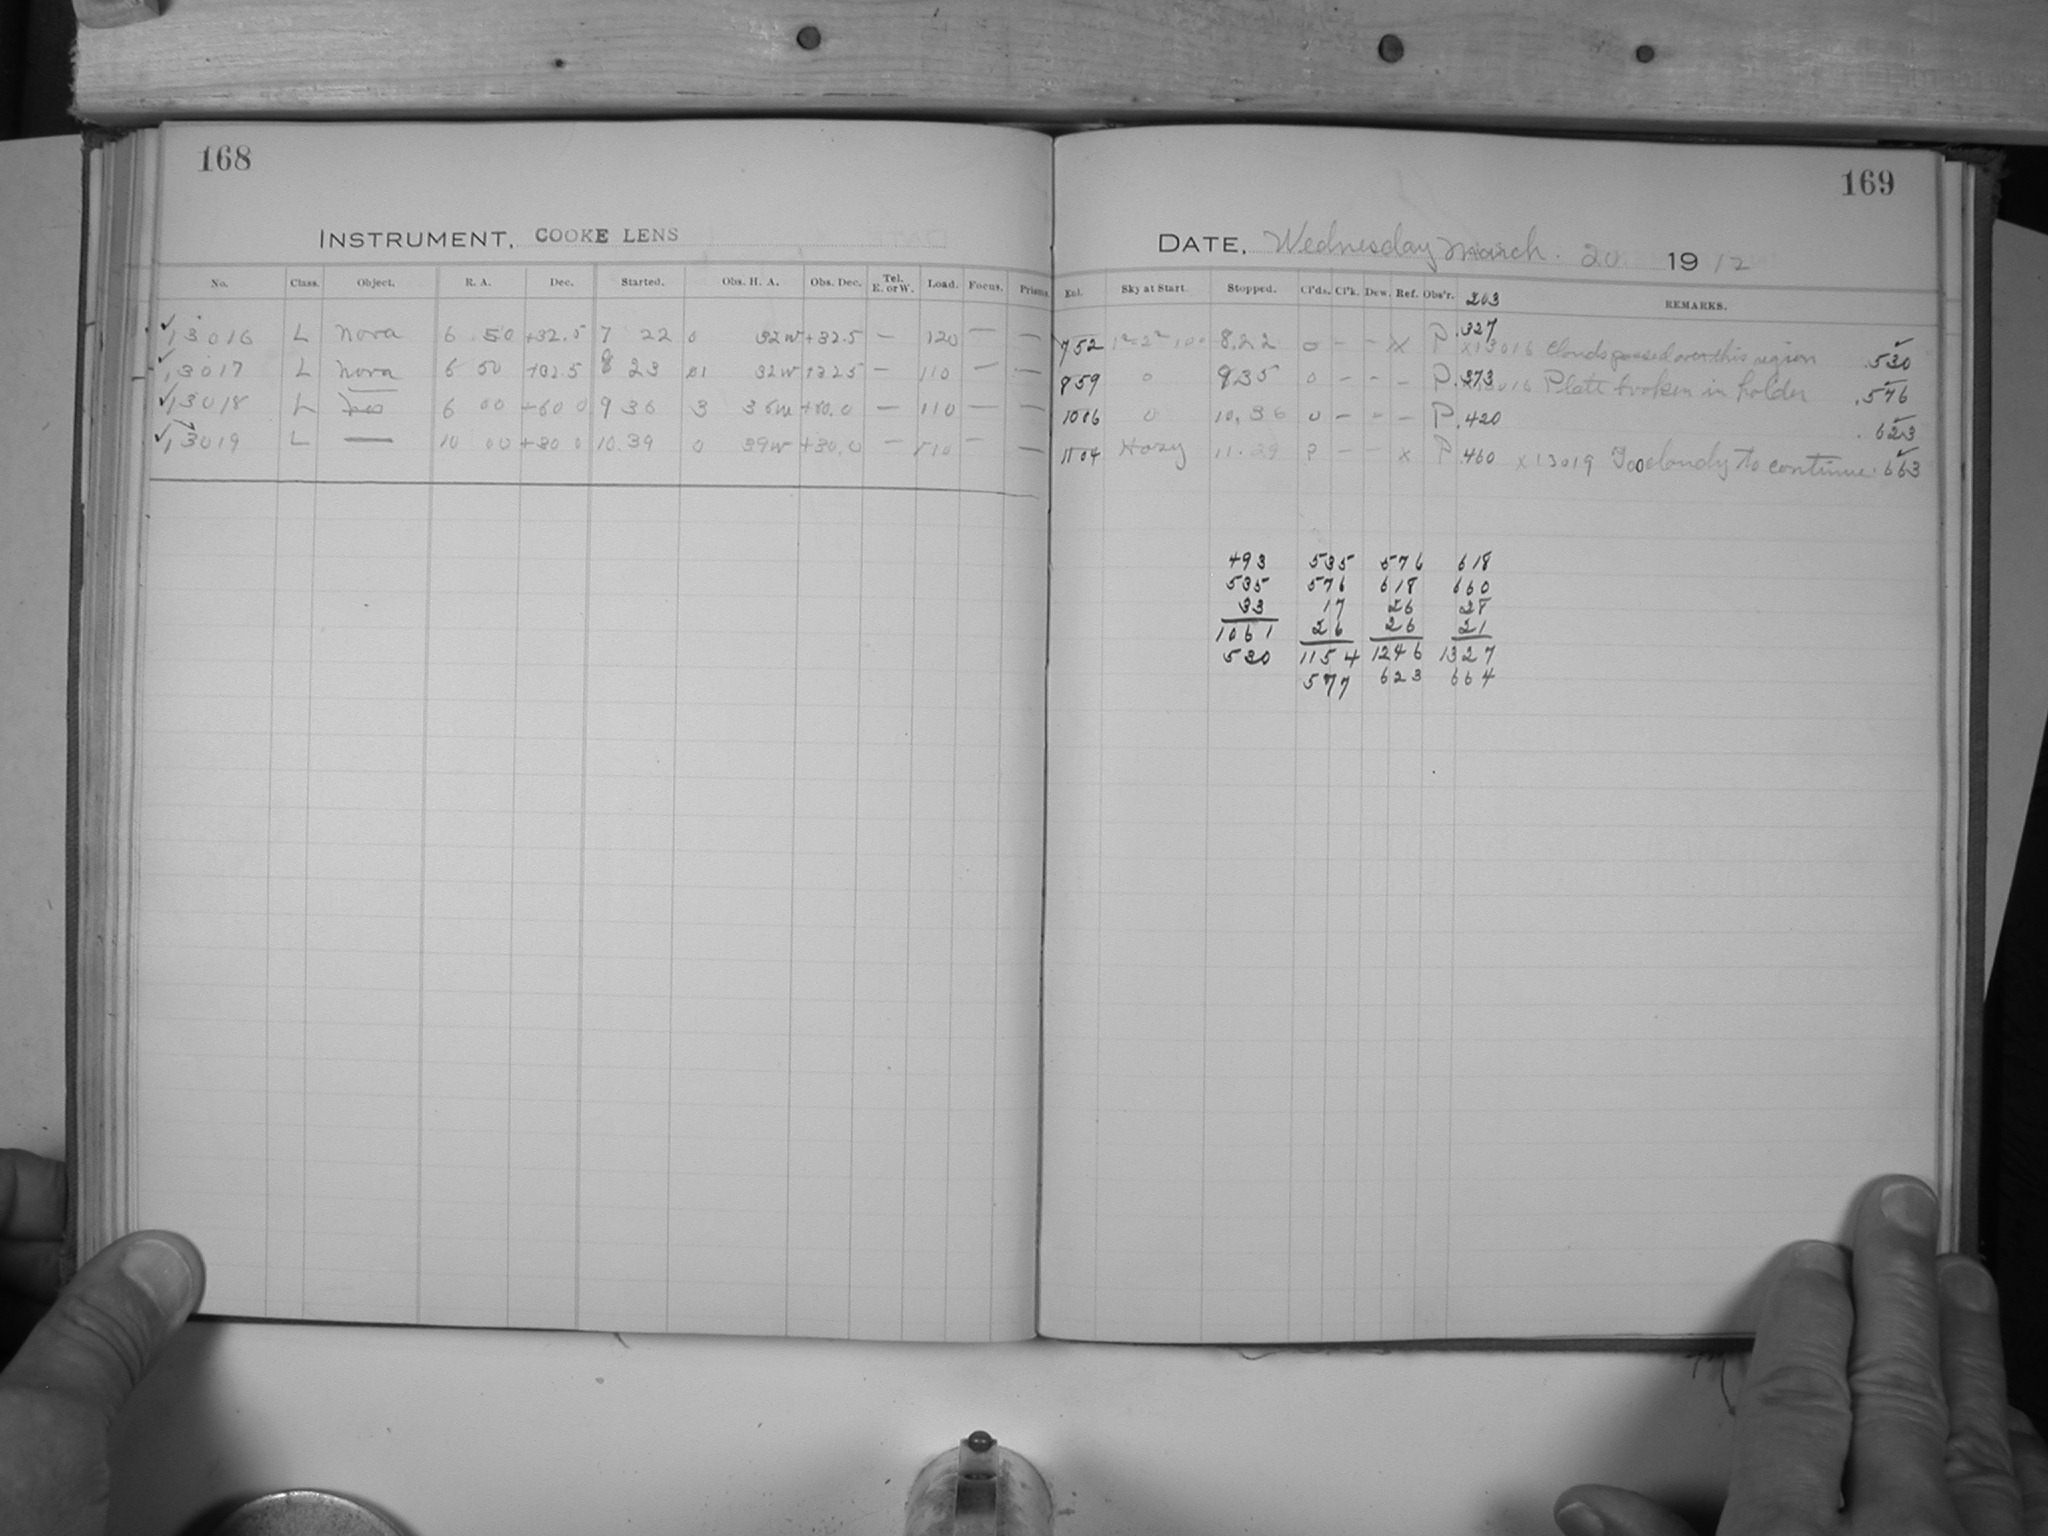 168
INSTRUMENT, COOKE LENS
No. Class. Object. R. A. Dec. Started. Obs. H. A. Obs. Dec. Tel. E. or W. Load. Focus. Prisms.
13016 L Nova 6 50 +32.5 7 22 0 32w +32.5 — 120 — —
13017 L Nova 6 50 +32.5 8 23 01 32w +32.5 — 110 — —
13018 L 6 00 +60 0 9 36 3 36w +60.0 — 110 — —
13019 L — 10 00 +30 0 10.39 0 39w +30.0 — 110 — —
169
DATE, Wednesday March. 20 1912
Exl. Sky at Start. Stopped. Cl'ds. Cl'k. Dew. Ref. Obs'r. 203 REMARKS.
.327
752 8.22 0 - - X P X13016 Clouds passed over this region .530
859 0 9 35 0 - - - P .373 X13016 Plate broken in holder .576
1006 0 10.36 0 - - - P .420 .623
1104 Hazy 11.29 P - - x P .460 X13019 Too cloudy to continue .663
493 535 576 618
535 576 618 660
33 17 26 28
1061 26 26 21
530 1154 1246 1327
577 623 664